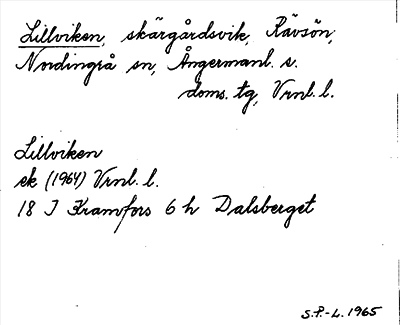 Lillviken, skärgårdsvik, Rävsön,
Nordingrå sn, Ångermanl. s.
doms. tg, Vrnl. l.
Lillviken
ek (1964) Vrnl. l.
18 I Kramfors 6 h Dalsberget
S.P.-L. 1965